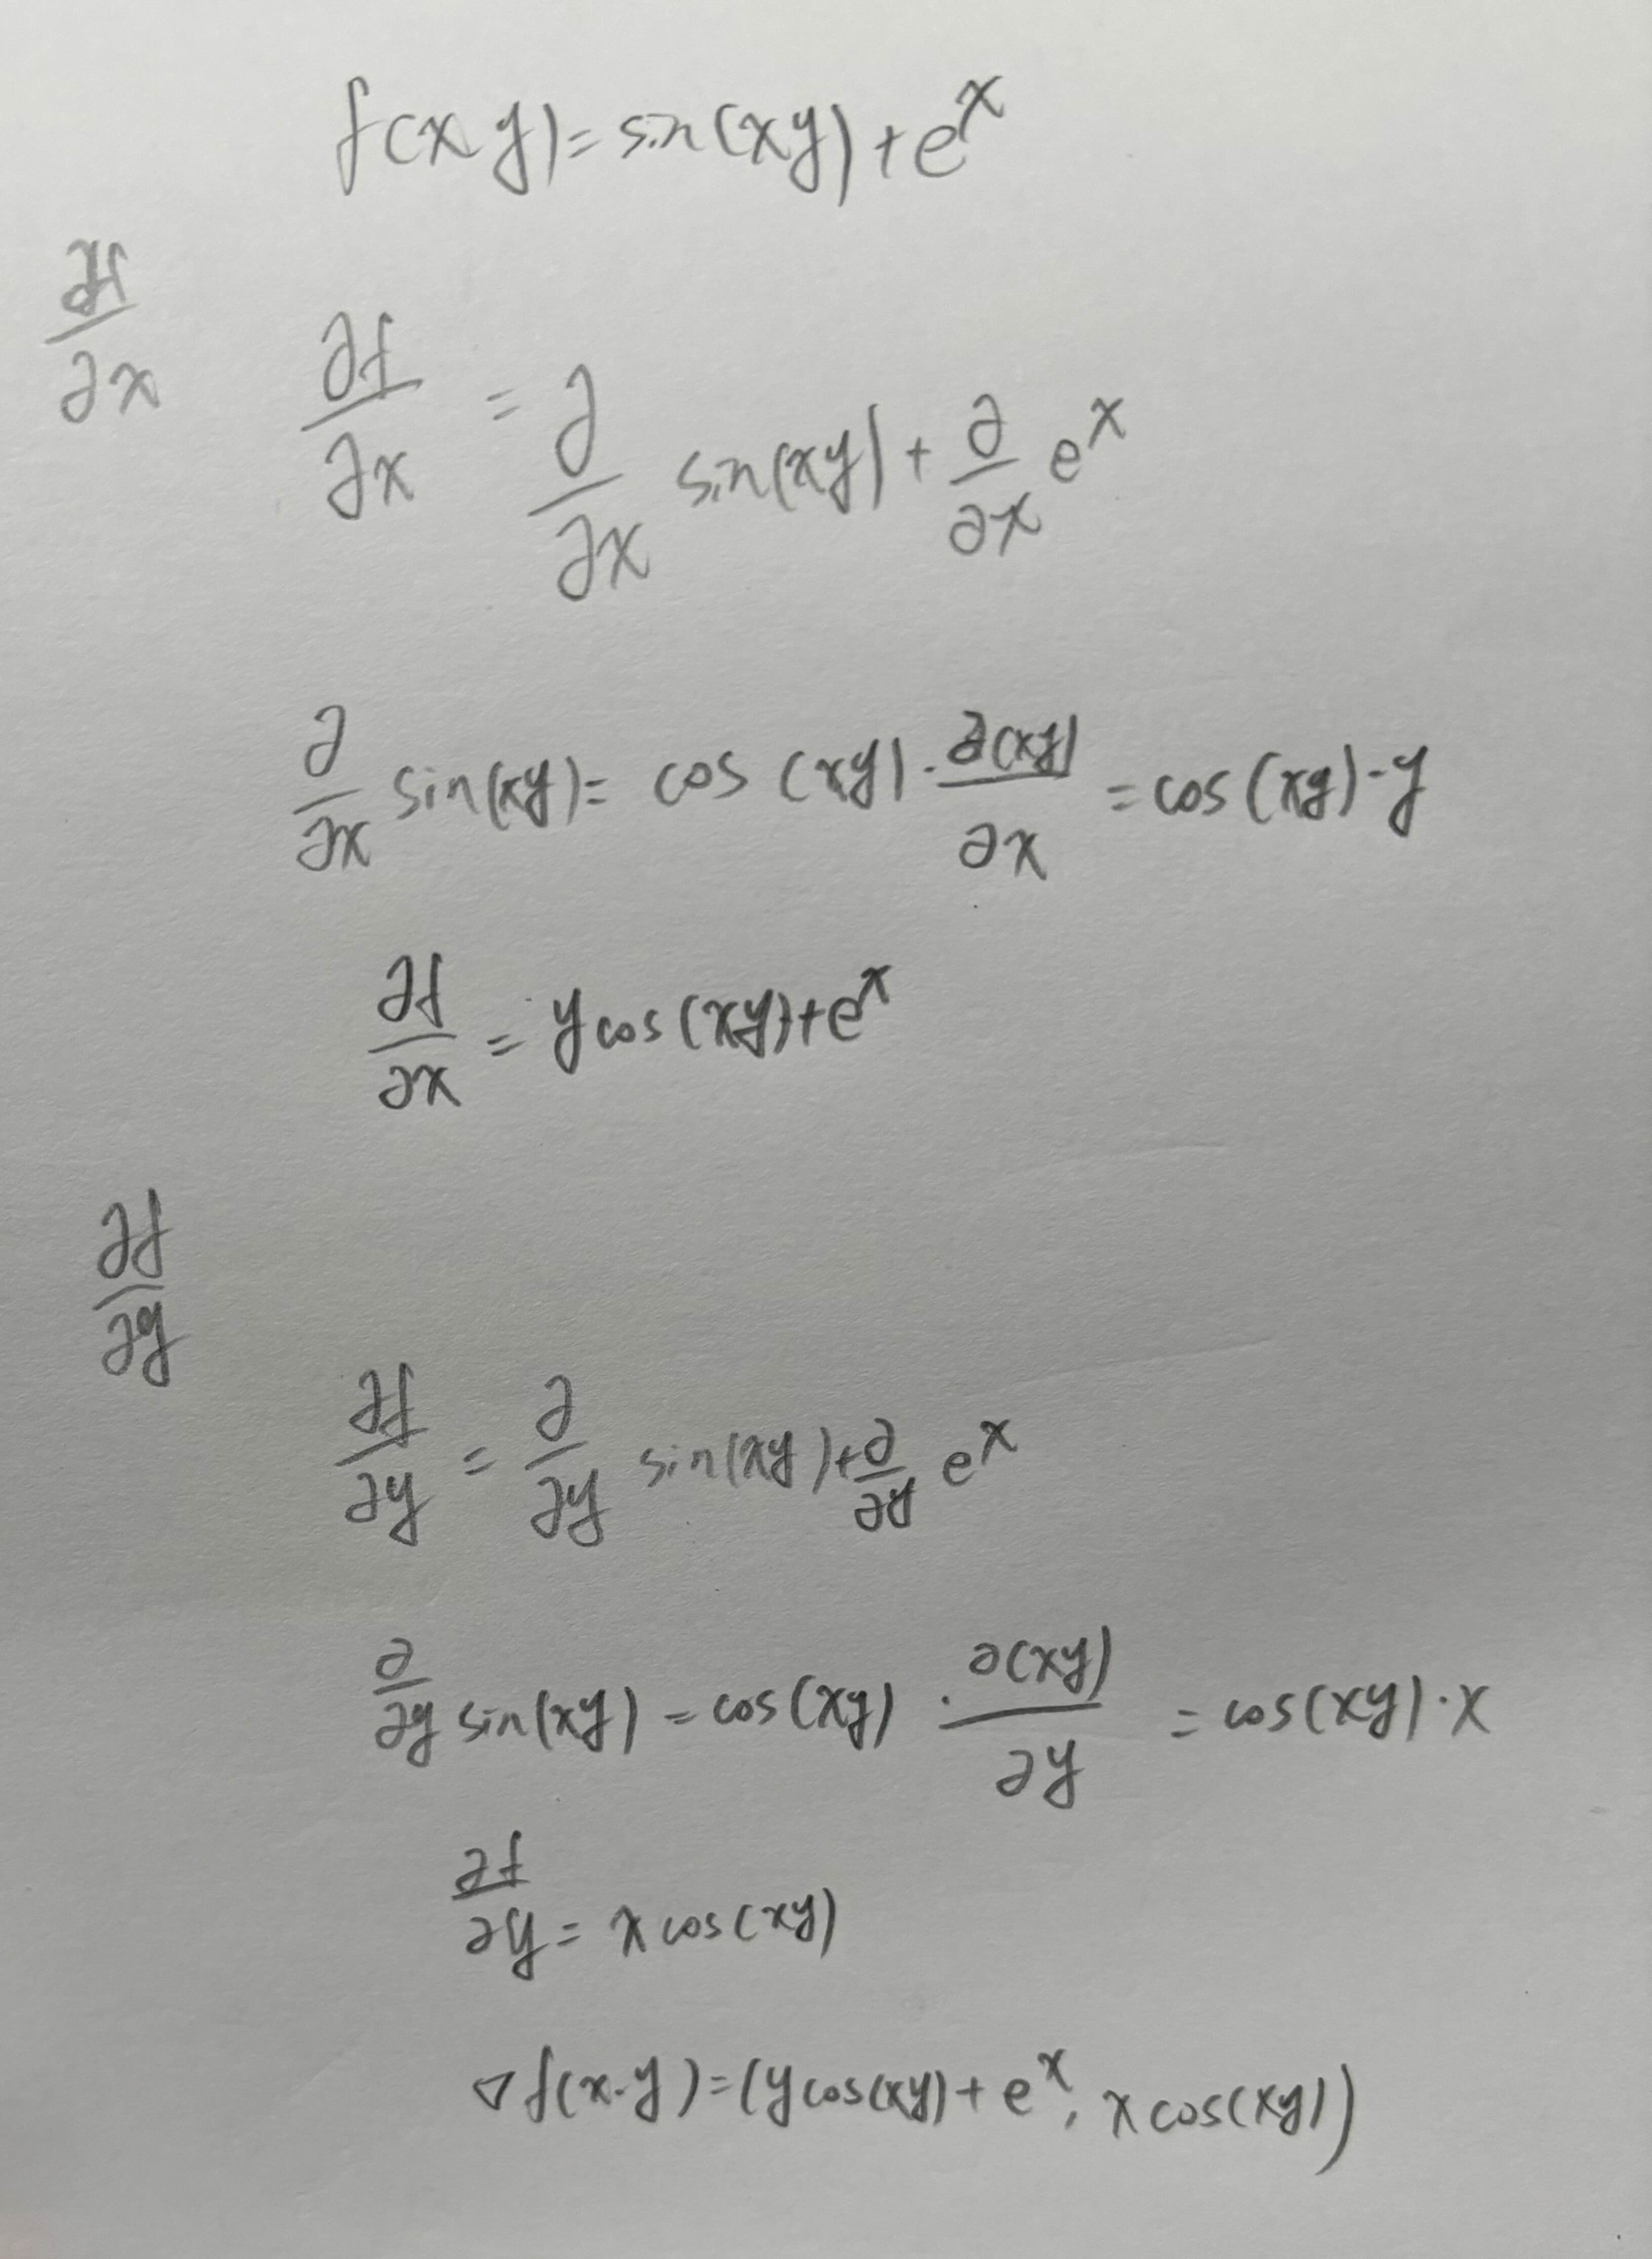 f(x y) = sin(xy) + e^x
∂f/∂x
∂f/∂x = ∂/∂x sin(xy) + ∂/∂x e^x
∂/∂x sin(xy) = cos (xy) · ∂(xy)/∂x = cos (xy) · y
∂f/∂x = y cos (xy) + e^x
∂f/∂y
∂f/∂y = ∂/∂y sin(xy) + ∂/∂y e^x
∂/∂y sin(xy) = cos(xy) · ∂(xy)/∂y = cos(xy) · x
∂f/∂y = x cos(xy)
∇f(x.y) = (y cos(xy) + e^x, x cos(xy))